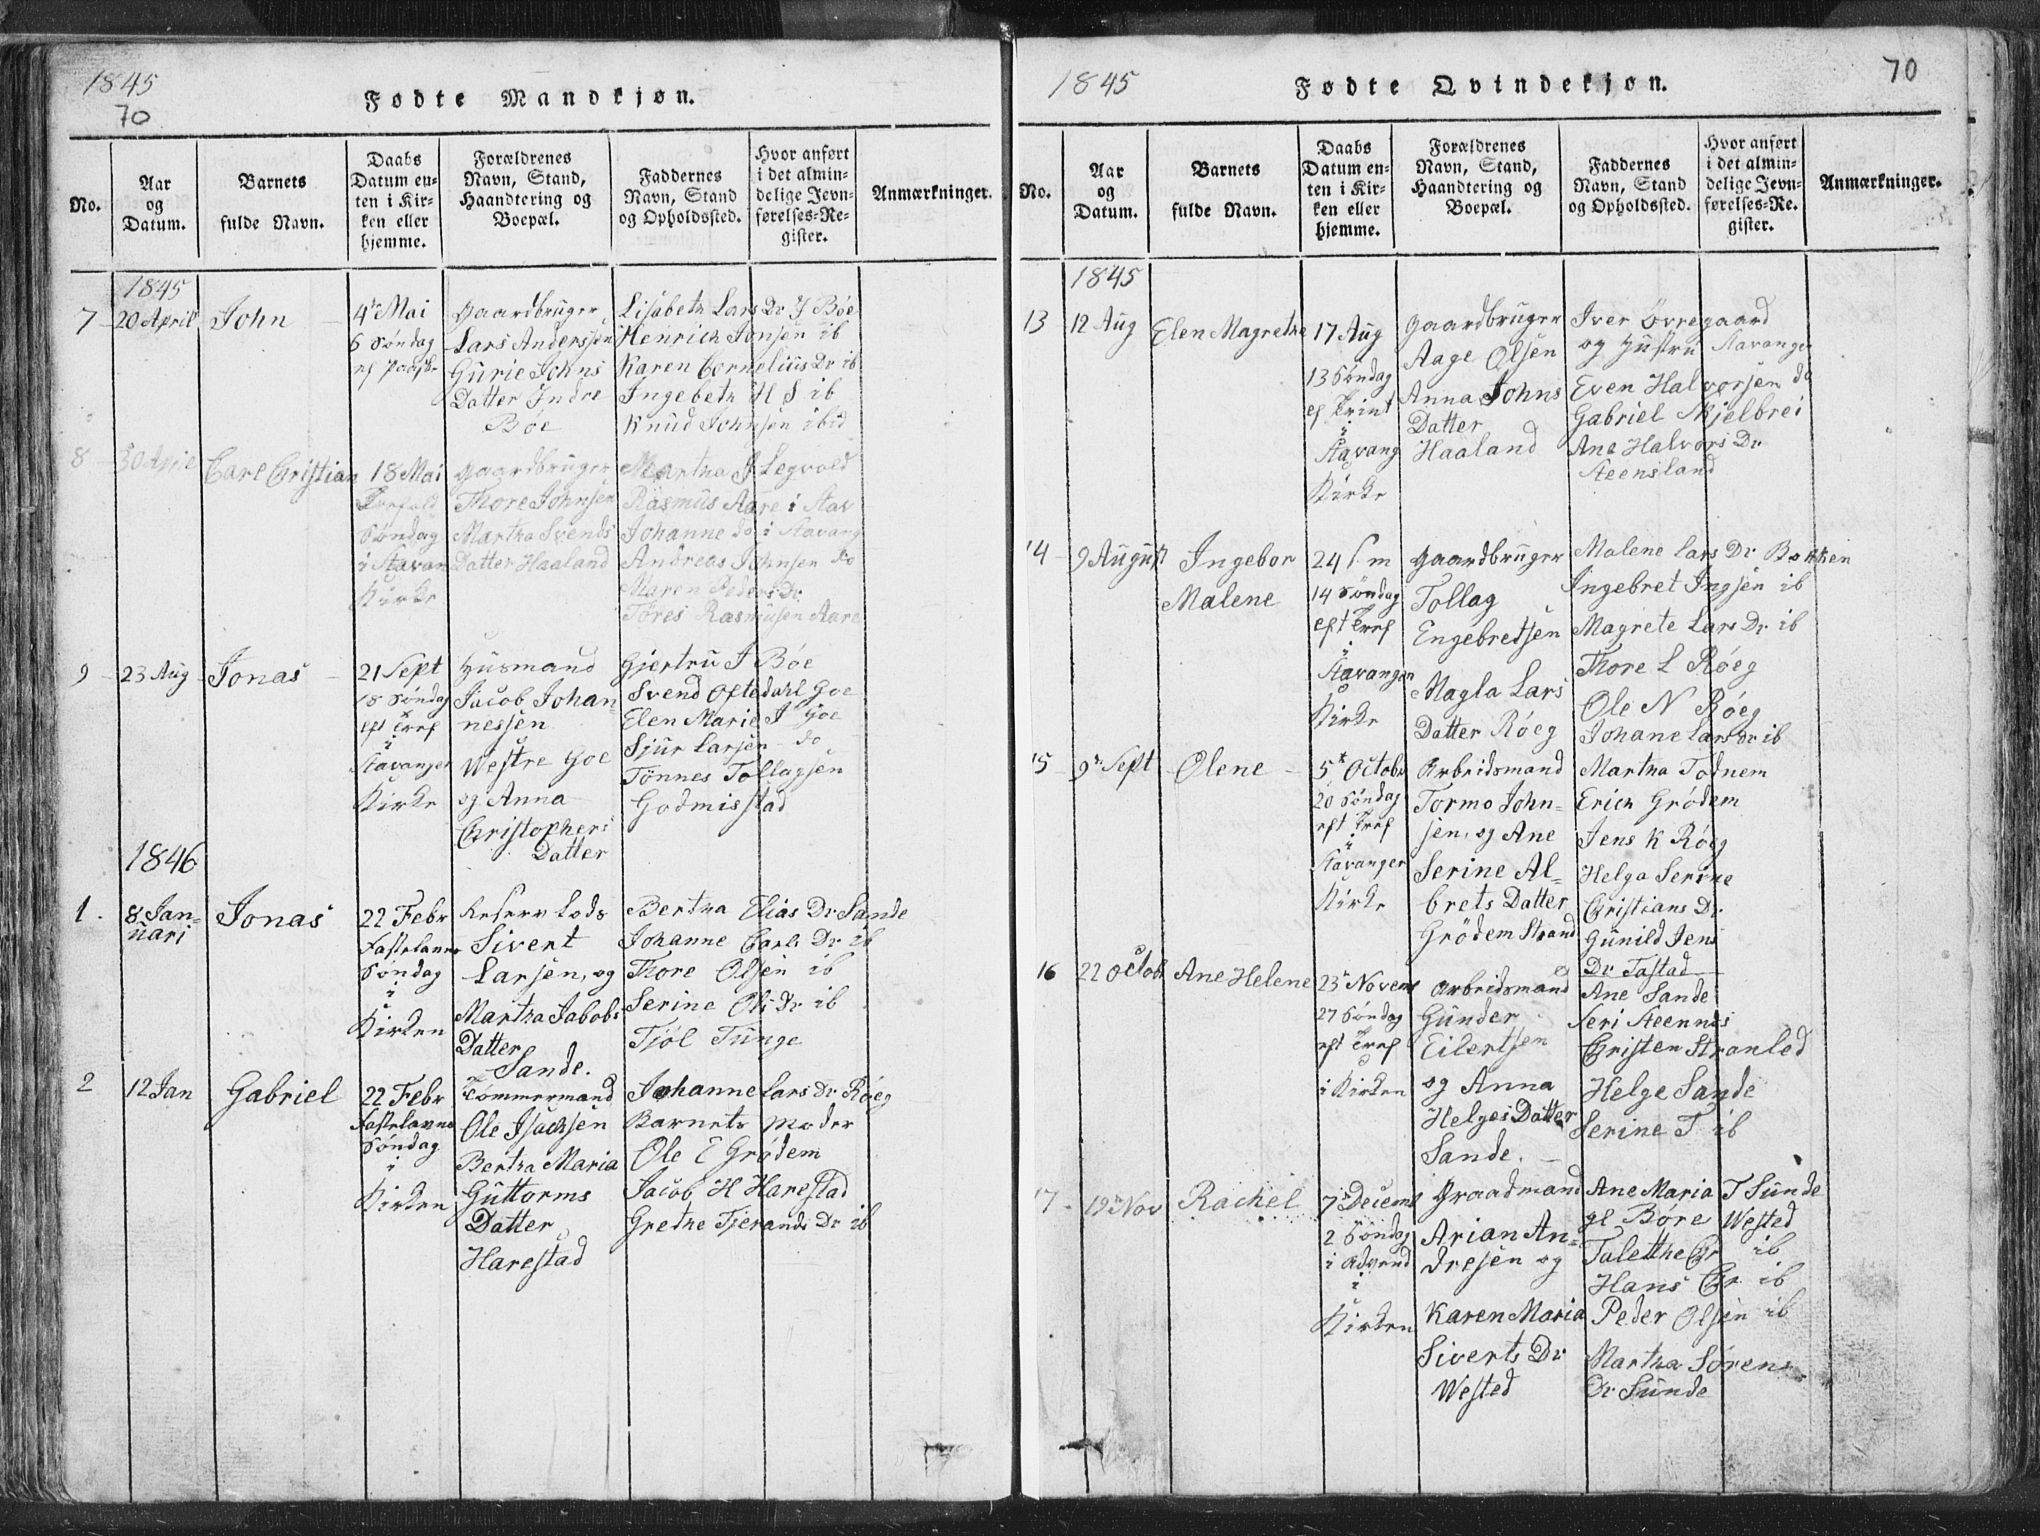 1845
70
Fødte Mandkjøn.
No.
Aar
og
Datum.
Barnets
fulde Navn.
Daabs
Datum en-
ten i Kir-
ken eller
hjemme.
Forældrenes
Navn, Stand,
Haandtering og
Boepæl.
Faddernes
Navn, Stand
og Opholdssted.
Hvor anført
i det almin-
delige Jevn-
førelses-Re-
gister.
Anmærkninger.
1845
7
20 April
John
4de Mai
5 Søndag
Gaardbruger
Lars Anderssen
Gurie Johns
Datter Indre
Bøe
Lisabeth Lars Dr J Bøe
Henrich Jonsen ib
Karen Cornelius Dr ib
Ingebeth H S ib
Knud Johnsen ibid
8
30 April
Carl Cristian
18 Mai
Søndag
i Stavan
Kirke
Gaardbruger
Thore Johnsen
Martha Svends
Datter Haaland
Martha J Legvold
Rasmus Aare i Stav
Johanne do i Stavang
Andreas Johnsen do
Maren Peders Dr
Tøres Rasmusen Aare
9
23 Aug
Jonas
21 Sept
18 Søndag
eft Tref
i
Stavanger
Kirke
Husmand
Jacob Johan-
nessen
Westre Goe
og Anna
Christophers
Datter
Gjertru J Bøe
Svend Oftedahl Goe
Elen Marie J Goe
Sjur Larsen do
Tønnes Tollagsen
Godmisstad
1846
1.
8 Jan-
uari
Jonas
22 Febr
Fastelavns
Søndag
i
Kirken
Reserv Lods
Sivert
Larsen, og
Martha Jabobs
Datter
Sande.
Bertha Elias Dr Sande
Johanne Carls Dr ib
Thore Olsen ib
Serine Ols Dr ib
Tjøl Tunge
2
12 Jan
Gabriel
22 Febr
Fastelavns
Søndag
i
Kirken
Tømmermand
Ole Isachsen
Bertha Maria
Guttorms
Datter
Harestad
Johanne Lars Dr Røeg
Barnets Moder
Ole E Grødem
Jacob H Harestad
Grethe Tjerands Dr ib
1845
70
Fødte Qvindekjøn.
No.
Aar
og
Datum.
Barnets
fulde Navn.
Daabs
Datum en-
ten i Kir-
ken eller
hjemme.
Forældrenes
Navn, Stand,
Haandtering og
Boepæl.
Faddernes
Navn, Stand
og Opholdssted.
Hvor anført
i det almin-
delige Jevn-
førelses-Re-
gister.
Anmærkninger.
1845
13
12 Aug
Elen Magrethe
17 Aug
13 Søndag
ef Trint
i
Stavang
Kirke
Gaardbruger
Aage Olsen
Anna Johns
Datter
Haaland
Iver Øvregaard
og Hustru Stavanger
Even Halvorsen do
Gabriel Skjelbrei
Ane Halvors Dr
Steensland
14
9 August
Ingebor
Malene
24 S m
14 Søndag
eft Tref
i
Stavanger
Kirke
Gaardbruger
Tollag
Engebretsen
Magla Lars
Datter Røeg
Malene Lars Dr Bakken
Ingebret Ingsen ib
Magrete Lars Dr ib
Thore L Røeg
Ole N Røeg
Johane Lars Dr ib
15
9 Sept
Olene
5t Octobr
20 Søndag
eft Tref
i
Stavanger
Kirke
Arbeidsmand
Tormo John-
sen, og Ane
Serine Al-
brets Datter
Grødem Strand
Martha Todnem
Erich Grødem
Jens K Røeg
Helga Serine
Christians Dr
Gunild Jens
Dr Tastad
16
22 Octobr
Ane Helene
23 Novem
27 Søndag
eft Tref
i Kirken
Arbeidsmand
Gunder
Eilertsen
og Anna
Helges Datter
Sande.
Ane Sande
Seri Steennes
Christen Stranled
Helge Sande
Serine T ib
17
19 Nov
Rachel
7 Decemb
2 Søndag
i Advend
i
Kirken
Graadmand
Arian An-
dresen og
Karen Maria
Siverts Dr
Wested
Ane Maria T Sunde
gl Børe Wested
Talethe Chr ib
Hans Chr ib
Peder Olsen ib
Martha Sørens
Dr Sunde